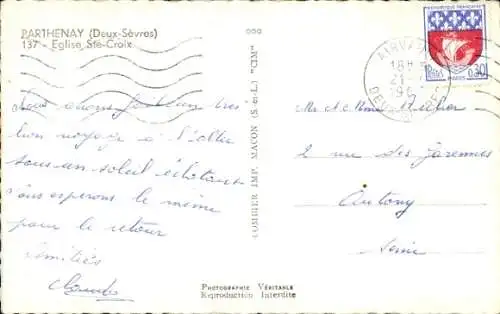 PARTHENAY (Deux-Sèvres)
137 - Eglise Ste-Croix
Nous avons fait un très
bon voyage à l'aller
sous un soleil éclatant
nous espérons le même
pour le retour
Amitiés
COMBIER IMP. MACON (S.-et-L.) "CIM"
REPUBLIQUE FRANÇAISE
PARIS
0,30
AIRVAULT
18 H
21
196
DEUX
Mr et Mme
2 rue des Garennes
Antony
Seine
PHOTOGRAPHIE VÉRITABLE
Reproduction Interdite